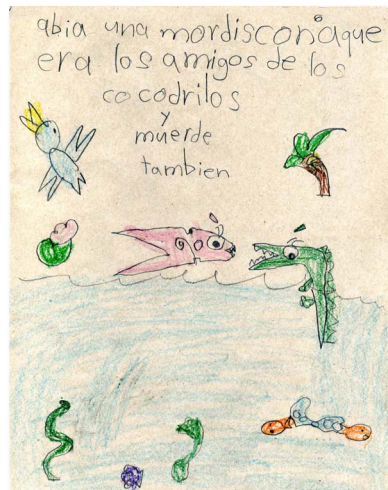 abia una mordisconaque
era los amigos de los
cocodrilos
y
muerde
tambien